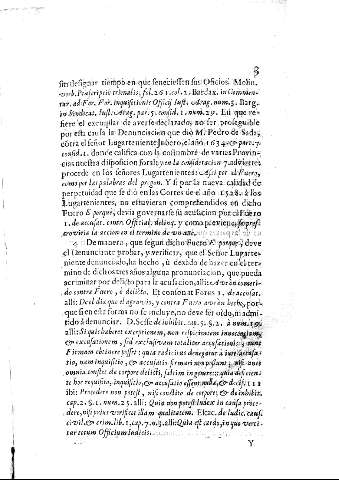 8
sin designar tiempo en que feneciessen sus Oficios. Molin.
verb. Præscriptio triennalis, fol. 261. col. 2. Bardax. in Commen-
tar. ad For. For. Inquisitionis Officij Iust. Arag. num. 5. Barg.
Arag. par. 5. consid. 1. num. 29. En que re-
fiere el exemplar de averse declarado, no ser prorogable
por esta causa la Denunciacion que diò M. Pedro de Sada,
côtra el señor Lugarteniente Iubero, el año 1634
consid. 1. donde califica con la costumbre de varias Provin-
cias nuestra disposicion foral; y en la consideracion 7. advierte,
procede en los señores Lugartenientes: Assi por el Fuero,
como por las palabras del pregon. Y si por la nueva calidad de
perpetuidad que se diò en las Cortes de el año 1528. à los
Lugartenientes, no estuvieran comprehendidos en dicho
Fuero E porque, devia governarse su acusacion por el Fuero
1. de accusat. contr. Official. delinq. y como previene
la accion en el termino de un año.
4 Demanera, que segun dicho Fuero E porque, deve
el Denunciante probar, y verificar, que el Señor Lugarte-
niente denunciado, ha hecho, ò dexado de hazer en el ter-
mino de dichos tres años alguna pronunciacion, que pueda
acriminar por delicto para la acusacion, alli: Averà cometi-
do contra Fuero, ò delicto. Et consonat Forus 1. de accusat.
alli: De el dia que el agravio, y contra Fuero averàn hecho, por-
que si en esta forma no se incluye, no deve ser oido, ni admi-
tido à denunciar. D. Sesse de inhibit. cap. 5. §. 2. à num. 19.
alli: Si quis haberet exceptionem, non respicientem innocentiam,
& excusationem, sed exclusivam totaliter accusationis, nunc
Firmam obtinere posset: quia radicitus denegatur
tio, nam inquisitio, & accusatio firmari non possunt,
omnia constet de corpore delicti, saltim in genere:
te hoc requisito, inquisitio, & accusatio essent nulla, & decis. 111
ibi: Procedere non potest, nisi constito de corpore; & de inhibit.
cap. 2. §. 1. num. 25. alli: Quia non potest Iudex in causa proce-
dere, nisi prius verificet illam qualitatem. Escac. de Iudic. caus.
civil. & crim. lib. 1. cap. 7. n. 3. alli: Quia est cardo, in quo verti-
tur totum Officium Iudicis.
Y